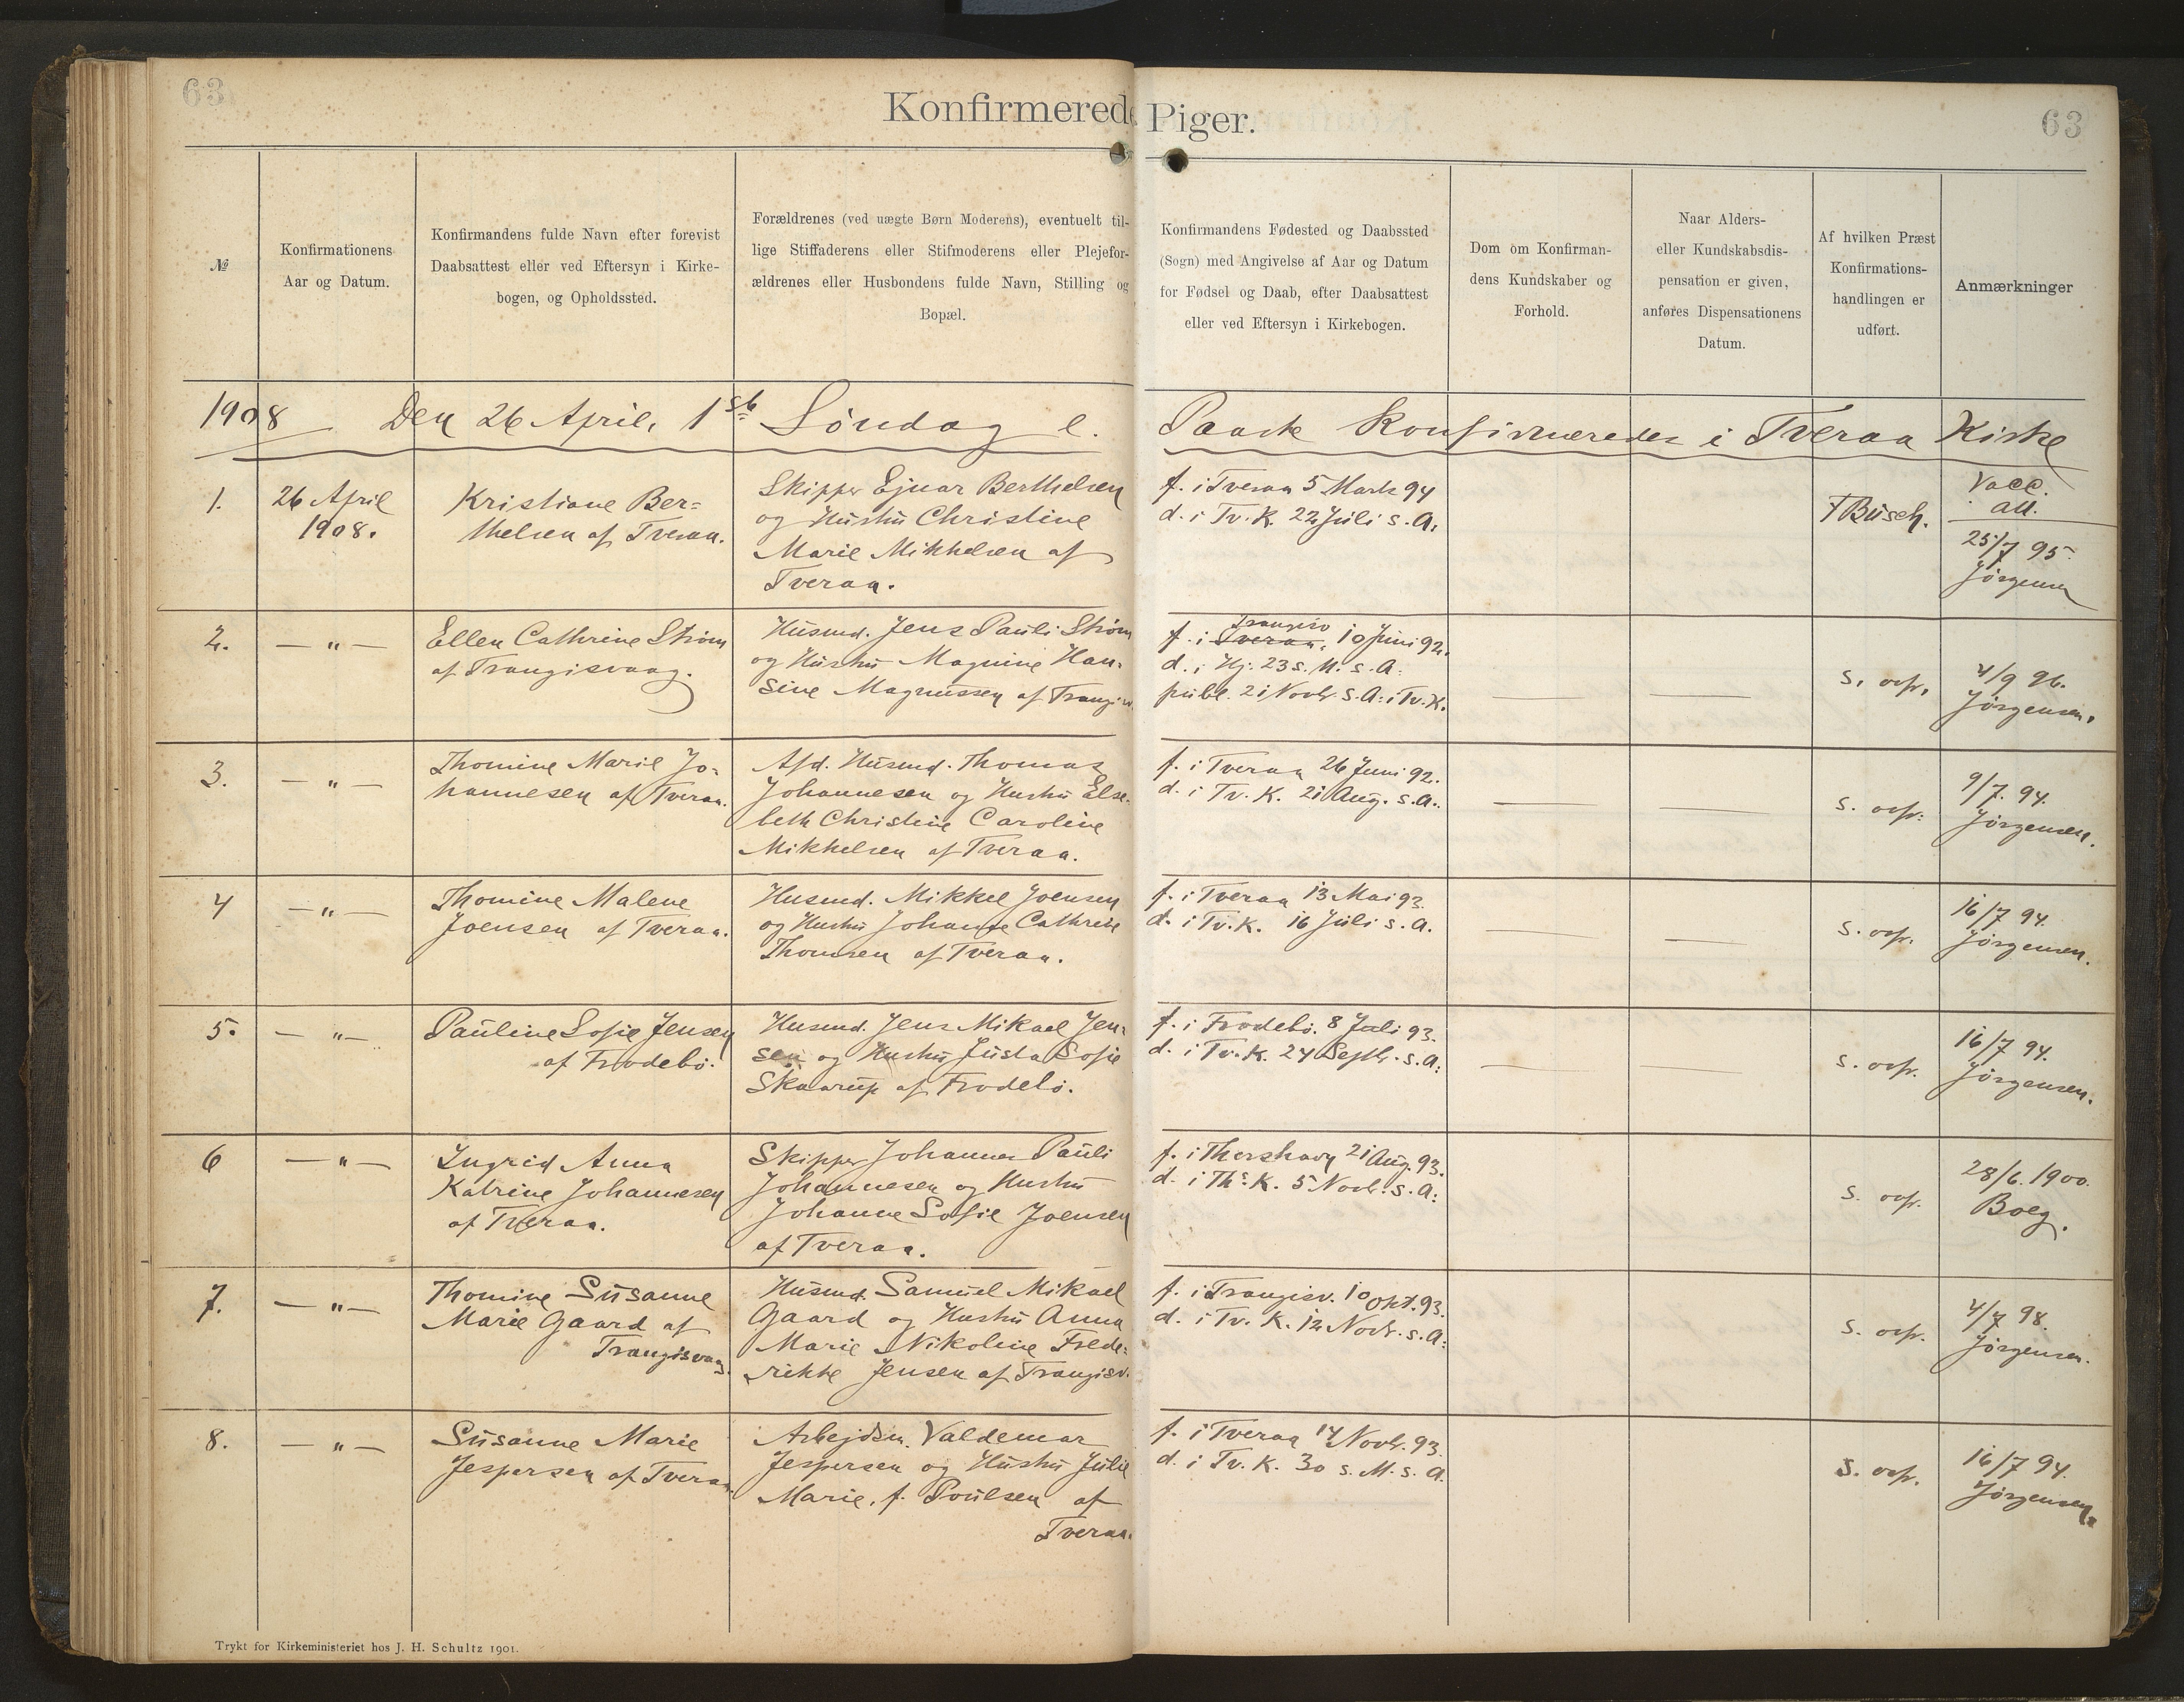 63
Konfirmerede Piger.
63
№
Konfirmationens
Aar og Datum.
Konfirmandens fulde Navn efter forevist
Daabsattest eller ved Eftersyn i Kirke-
bogen, og Opholdssted.
Forældrenes (ved uægte Børn Moderens), eventuelt til-
lige Stiffaderens eller Stifmoderens eller Plejefor-
ældrenes eller Husbondens fulde Navn, Stilling og
Bopæl.
Konfirmandens Fødested og Daabssted
(Sogn) med Angivelse af Aar og Datum
for Fødsel og Daab, efter Daabsattest
eller ved Eftersyn i Kirkebogen.
Dom om Konfirman-
dens Kundskaber og
Forhold.
Naar Alders-
eller Kundskabsdis-
pensation er given,
anføres Dispensationens
Datum.
Af hvilken Præst
Konfirmations-
handlingen er
udført.
Anmærkninger
1908 Den 26 April, 1ste Søndag e. Paaske Konfirmeredes i Tveraa Kirke
1.
26 April
1908.
Kristiane Ber=
thelsen af Tveraa.
Skipper Ejnar Berthelsen
og Hustru Christine
Marie Mikkelsen af
Tveraa.
f. i Tveraa 5 Marts 94
d. i Tv. K. 22 Juli s. A.
F Busch.
Vacc.
att.
25/7 95.
Jørgensen
2.
— " —
Ellen Cathrine Strøm
af Trangisvaag.
Husmd. Jens Pauli Strøm
og Hustru Magnine Han-
sine Magnussen af Trangisv.
Trangisv
f. i Tveraa, 10 Juni 92.
d. i Hj. 23 s. M. s. A.
publ. 21 Novbr. s. A. i Tv. K.
s. ovfr.
4/9 96.
Jørgensen.
3.
— " —
Thomine Marie Jo-
hannesen af Tveraa.
Afd. Husmd. Thomas
Johannesen og Hustru Else-
beth Christine Caroline
Mikkelsen af Tveraa.
f. i Tveraa 26 Juni 92.
d. i Tv. K. 21 Aug. s. A.
s. ovfr.
9/7. 94.
Jørgensen.
4
— " —
Thomine Malene
Joensen af Tveraa.
Husmd. Mikkel Joensen
og Hustru Johanne Cathrine
Thomsen af Tveraa.
f. i Tveraa 13 Mai 93.
d. i Tv. K. 16 Juli s. A.
s. ovfr.
16/7 94.
Jørgensen.
5.
— " —
Pauline Sofie Jensen
af Frodebø.
Husmd. Jens Mikael Jen-
sen og Hustru Justa Sofie
Skaarup af Frodebø.
f. i Frodebø. 8 Juli 93.
d. i Tv. K. 24 Septbr. s. A.
s. ovfr.
16/7 94.
Jørgensen.
6
— " —
Ingrid Anna
Katrine Johannesen
af Tveraa.
Skipper Johannes Pauli
Johannesen og Hustru
Johanne Sofie Joensen
af Tveraa.
f. i Thorshavn 21 Aug. 93.
d. i Ths. K. 5 Novbr. s. A.
s. ovfr.
28/6. 1900.
Boeg.
7.
— " —
Thomine Susanne
Marie Gaard af
Trangisvaag.
Husmd. Samuel Mikael
Gaard og Hustru Anna
Marie Nikoline Frede-
rikke Jensen af Trangisv.
f. i Trangisv. 10 Okt. 93.
d. i Tv. K. 12 Novbr. s. A.
s. ovfr.
4/7 98.
Jørgensen.
8.
— " —
Susanne Marie
Jespersen af Tveraa.
Arbejdsm. Valdemar
Jespersen og Hustru Julie
Marie, f. Poulsen af
Tveraa.
f. i Tveraa 14 Novbr. 93.
d. i Tv. K. 30 s. M. s. A.
s. ovfr.
16/7 94.
Jørgensen.
Trykt for Kirkeministeriet hos J. H. Schultz 1901.